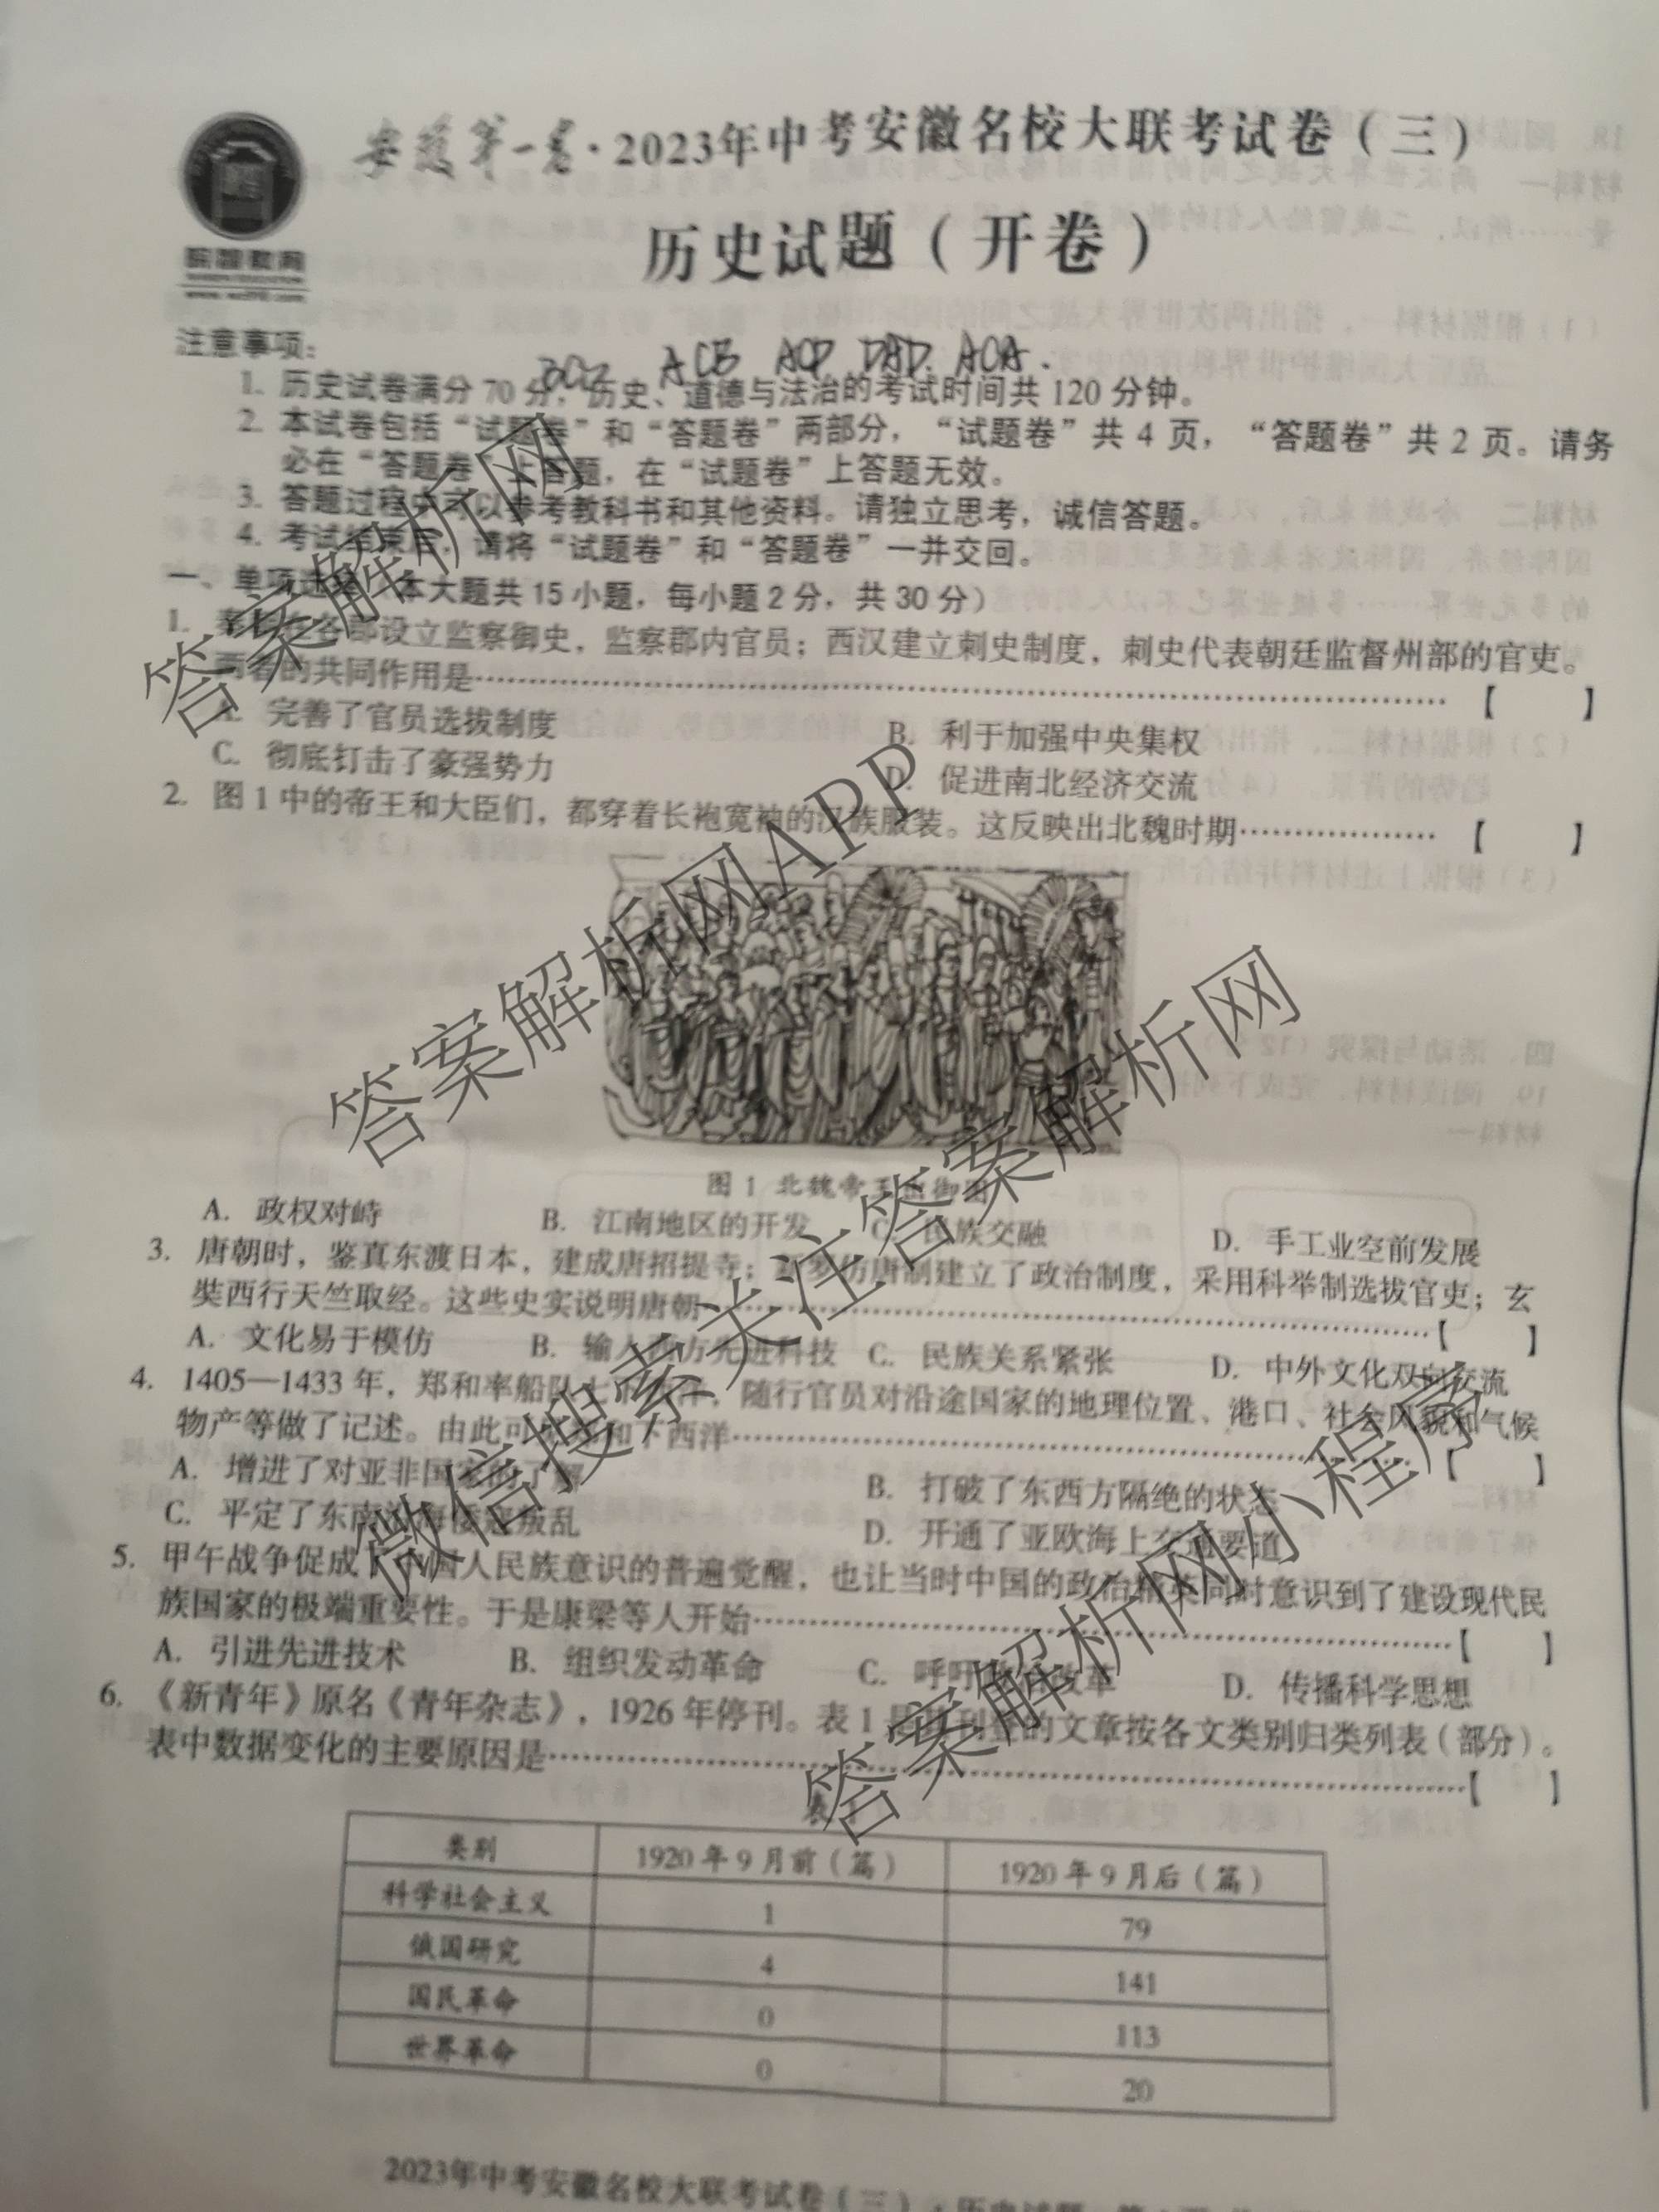 安徽第一卷·2023年中考安徽名校大联考试卷(三)
历史试题(开卷)
注意事项:
ACB
1. 历史试卷满分70分,历史、道德与法治的考试时间共120分钟。
2. 本试卷包括“试题卷”和“答题卷”两部分,“试题卷”共4页,“答题卷”共2页。请务
必在“答题卷”上答题,在“试题卷”上答题无效。
3. 答题过程中可以参考教科书和其他资料。请独立思考,诚信答题。
4. 考试结束后,请将“试题卷”和“答题卷”一并交回。
一、单项选择(本大题共15小题,每小题2分,共30分)
1. 秦朝在各郡设立监察御史,监察郡内官员;西汉建立刺史制度,刺史代表朝廷监督州部的官吏。
两者的共同作用是……【 】
A. 完善了官员选拔制度
B. 利于加强中央集权
C. 彻底打击了豪强势力
D. 促进南北经济交流
2. 图1中的帝王和大臣们,都穿着长袍宽袖的汉族服装。这反映出北魏时期……【 】
图1 北魏帝王出御图
A. 政权对峙 B. 江南地区的开发 C. 民族交融 D. 手工业空前发展
3. 唐朝时,鉴真东渡日本,建成唐招提寺;新罗仿唐制建立了政治制度,采用科举制选拔官吏;玄
奘西行天竺取经。这些史实说明唐朝……【 】
A. 文化易于模仿 B. 输入西方先进科技 C. 民族关系紧张 D. 中外文化双向交流
4. 1405—1433年,郑和率船队七下西洋,随行官员对沿途国家的地理位置、港口、社会风貌和气候
物产等做了记述。由此可见郑和下西洋……【 】
A. 增进了对亚非国家的了解
B. 打破了东西方隔绝的状态
C. 平定了东南沿海倭寇叛乱
D. 开通了亚欧海上交通要道
5. 甲午战争促成了中国人民族意识的普遍觉醒,也让当时中国的政治精英同时意识到了建设现代民
族国家的极端重要性。于是康梁等人开始……【 】
A. 引进先进技术 B. 组织发动革命 C. 呼吁政治改革 D. 传播科学思想
6. 《新青年》原名《青年杂志》,1926年停刊。表1是其刊登的文章按各文类别归类列表(部分)。
表中数据变化的主要原因是……【 】
表1
类别 1920年9月前(篇) 1920年9月后(篇)
科学社会主义 1 79
俄国研究 4 141
国民革命 0 113
世界革命 0 20
2023年中考安徽名校大联考试卷(三)·历史试题
答案解析网
答案解析网APP
微信搜索关注答案解析网
答案解析网小程序